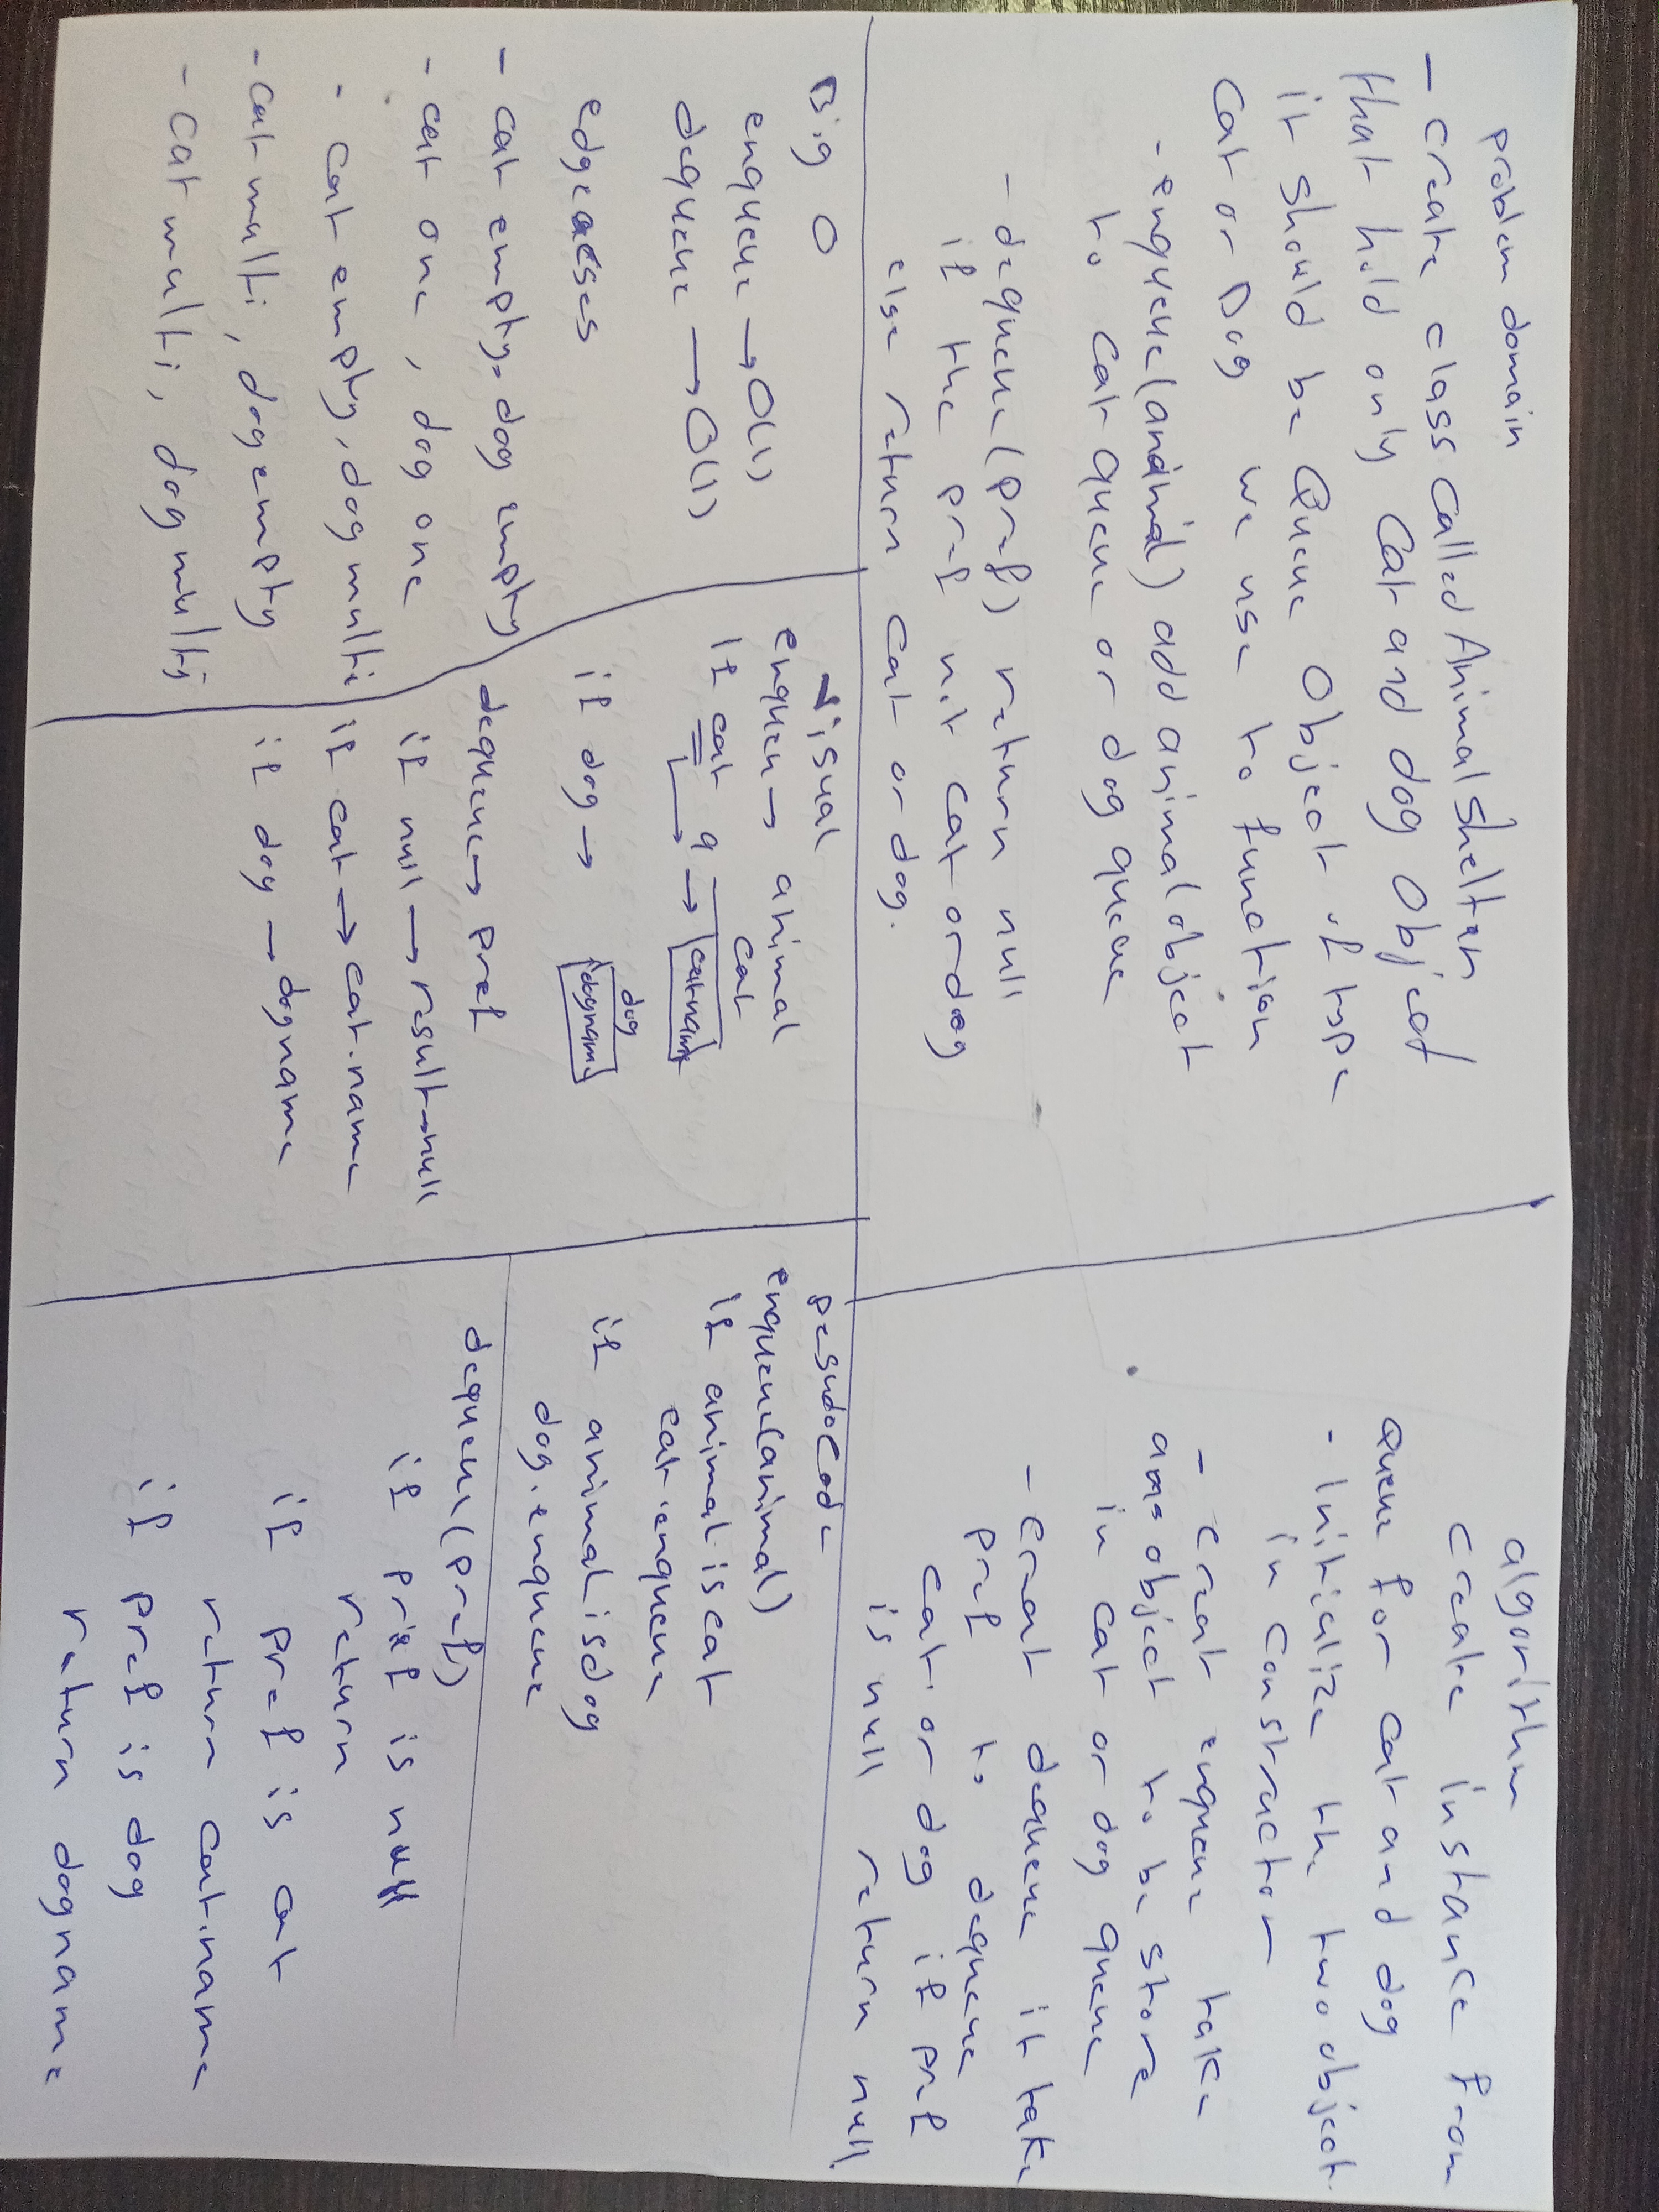 problem domain
- create class called AnimalShelter
that hold only Cat and dog Object
it should be Queue Object of type
Cat or Dog we use to function
- enqueue(animal) add animal object
to cat queue or dog queue
- dequeue(pref) return null
if the pref not cat or dog
else return cat or dog.
algorithm
create instance from
Queue for cat and dog
- Initialize the two object
in constructor
- creat enqueue take
object to be store
in cat or dog queue
- creat dequeue it take
pref to dequeue
cat or dog if pref
is null return null.
Big O
enqueue → O(1)
dequeue → O(1)
edge cases
- cat empty, dog empty
- cat one, dog one
- cat empty, dog multi
- cat multi, dog empty
- cat multi, dog multi
visual
enqueu → animal
cat
If cat q → catname
dog
if dog → dogname
dequeue → pref
if null → result → null
if cat → cat.name
if dog → dogname
pesudocode
enqueue(animal)
If animal is cat
cat.enqueue
if animal is dog
dog.enqueue
dequeue(pref)
if pref is null
return
if pref is cat
return cat.name
if pref is dog
return dogname